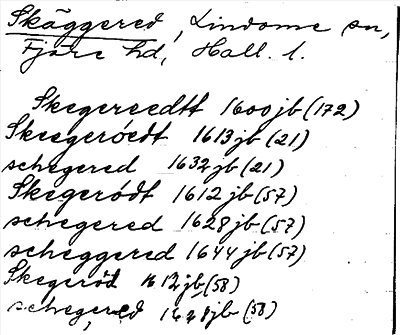 Skäggered, Lindome sn,
Fjäre hd, Hall. l.
Skegereedtt 1600 jb (172)
Skeegeröedt 1613 jb (21)
schegered 1632 jb (21)
Skegerödt 1612 jb (57)
schegered 1628 jb (57)
scheggered 1644 jb (57)
Skegeröd 1612 jb (58)
schegered 1628 jb (58)